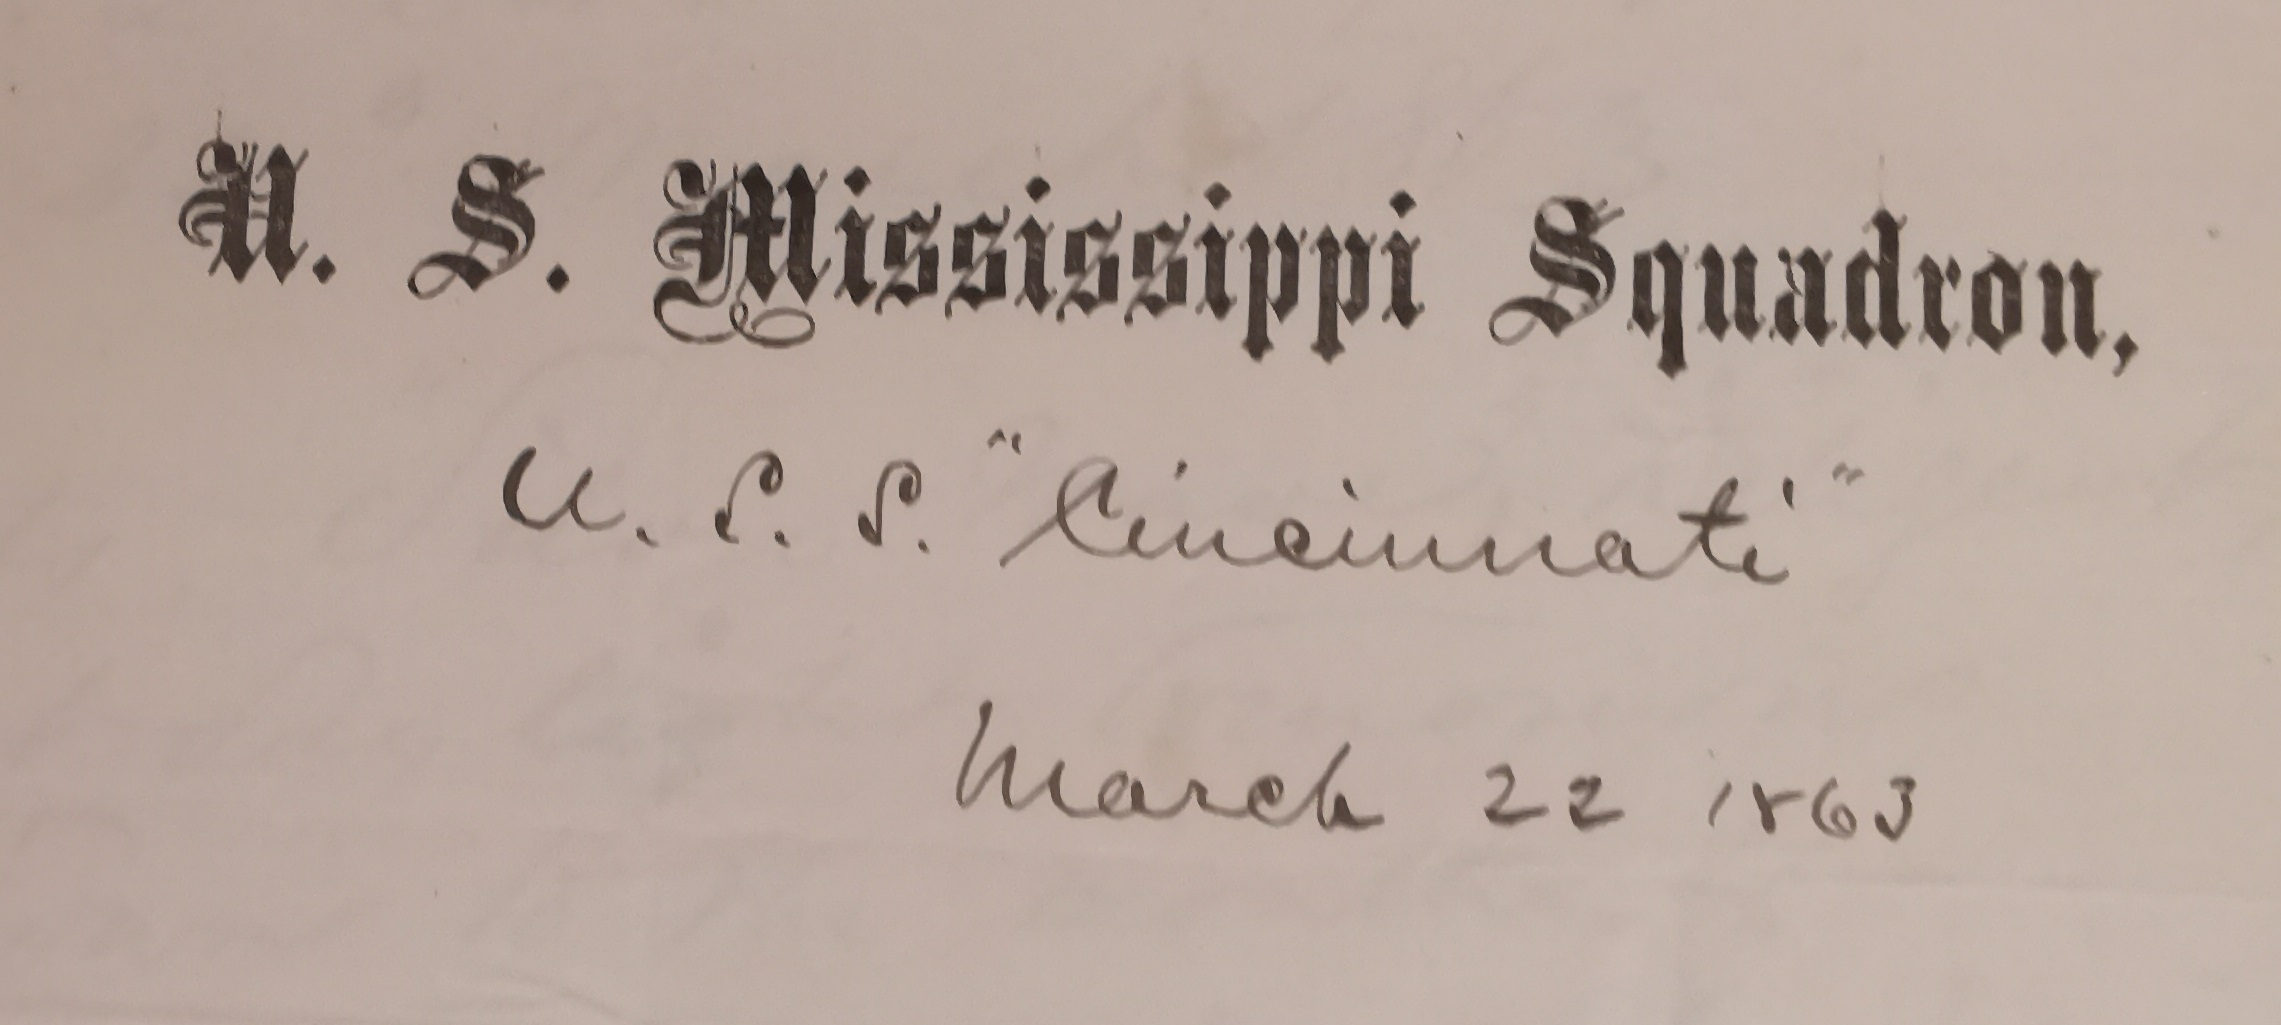 U. S. Mississippi Squadron,
U. S. S. "Cincinnati"
March 22 1863